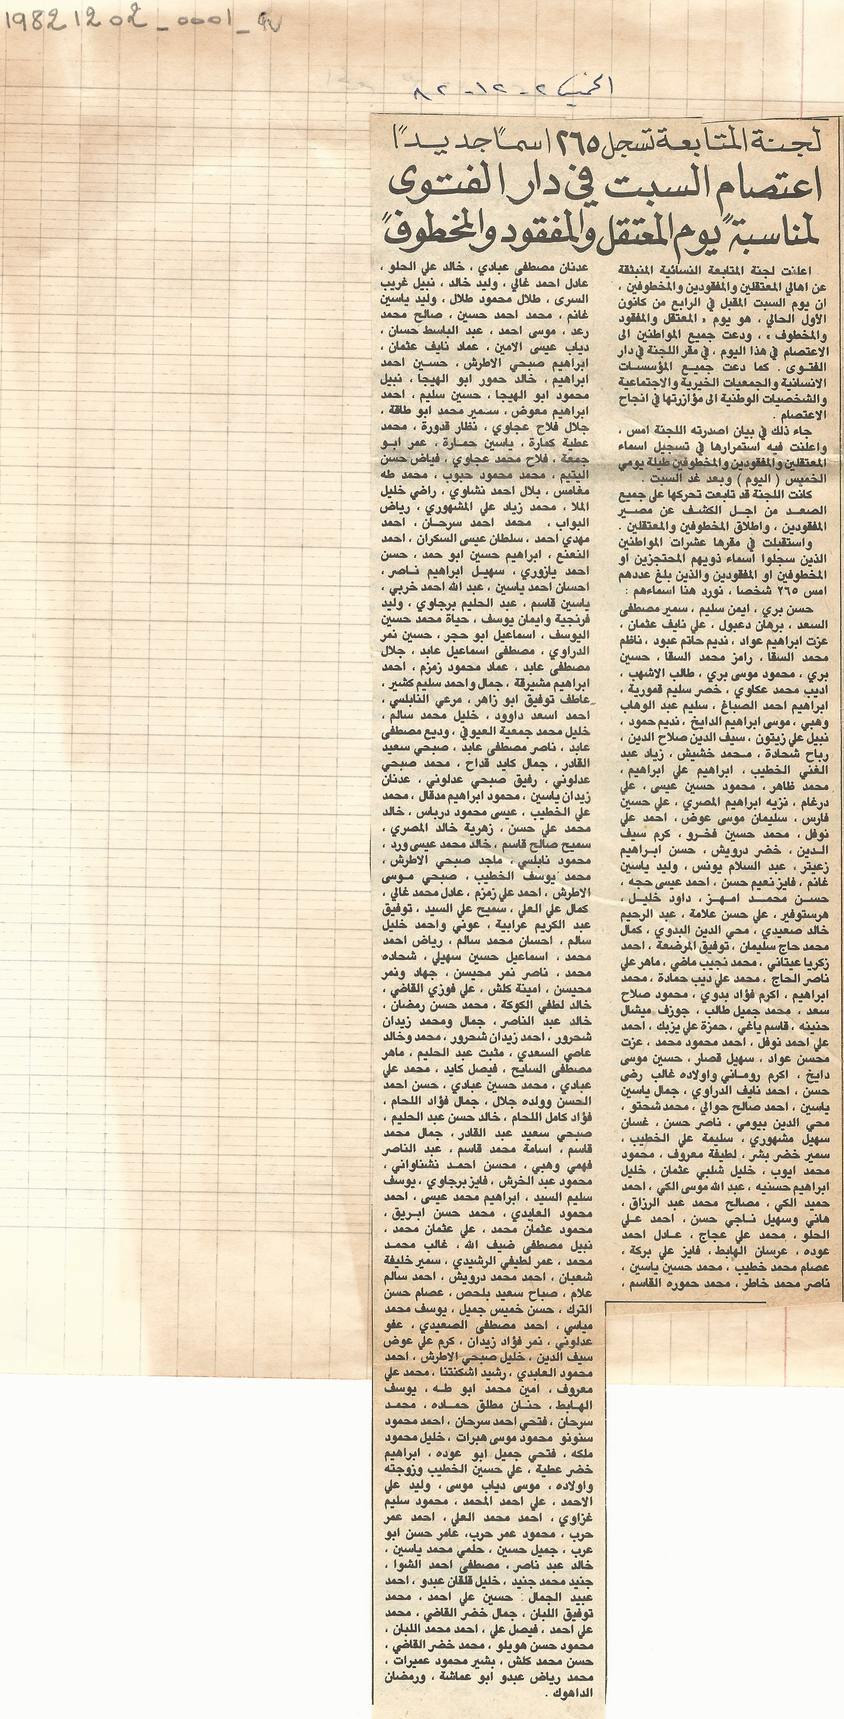 19821202_0001_
الخميس ٢-١٢-٨٢
لجنة المتابعة تسجل ٢٦٥ اسماً جديداً
اعتصام السبت في دار الفتوى
لمناسبة "يوم المعتقل والمفقود والمخطوف"
اعلنت لجنة المتابعة النسائية المنبثقة
عن اهالي المعتقلين والمفقودين والمخطوفين ،
ان يوم السبت المقبل في الرابع من كانون
الأول الحالي ، هو يوم « المعتقل والمفقود
والمخطوف » ، ودعت جميع المواطنين الى
الاعتصام في هذا اليوم ، في مقر اللجنة في دار
الفتوى . كما دعت جميع المؤسسات
الانسانية والجمعيات الخيرية والاجتماعية
والشخصيات الوطنية الى مؤازرتها في انجاح
الاعتصام .
جاء ذلك في بيان اصدرته اللجنة امس ،
واعلنت فيه استمرارها في تسجيل اسماء
المعتقلين والمفقودين والمخطوفين طيلة يومي
الخميس ( اليوم ) وبعد غد السبت .
كانت اللجنة قد تابعت تحركها على جميع
الصعد من اجل الكشف عن مصير
المفقودين ، واطلاق المخطوفين والمعتقلين .
واستقبلت في مقرها عشرات المواطنين
الذين سجلوا اسماء ذويهم المحتجزين او
المخطوفين او المفقودين والذين بلغ عددهم
امس ٢٦٥ شخصا ، نورد هنا اسماءهم :
حسن بري ، ايمن سليم ، سمير مصطفى
السعد ، برهان دعبول ، علي نايف عثمان ،
عزت ابراهيم عواد ، نديم حاتم عبود ، ناظم
محمد السقا ، رامز محمد السقا ، حسين
بري ، محمود موسى بري ، طالب الاشهب ،
اديب محمد عكاوي ، خضر سليم قمورية ،
ابراهيم احمد الصباغ ، سليم عبد الوهاب
وهبي ، موسى ابراهيم الدايخ ، نديم حمود ،
نبيل علي زيتون ، سيف الدين صلاح الدين ،
رباح شحادة ، محمد خشيش ، زياد عبد
الغني الخطيب ، ابراهيم علي ابراهيم ،
محمد ظاهر ، محمود حسين عيسى ، علي
درغام ، نزيه ابراهيم المصري ، علي حسين
فارس ، سليمان موسى عوض ، احمد علي
نوفل ، محمد حسين فخرو ، كرم سيف
الدين ، خضر درويش ، حسن ابراهيم
زعيتر ، عبد السلام يونس ، وليد ياسين
غانم ، فايز نعيم حسن ، احمد عيسى حجه ،
حسن محمد امهز ، داود خليل ،
هرستوفير ، علي حسن علامة ، عبد الرحيم
خالد صعيدي ، محي الدين البدوي ، كمال
محمد حاج سليمان ، توفيق المرضعة ، احمد
زكريا عيتاني ، محمد نجيب ماضي ، ماهر علي
ناصر الحاج ، محمد علي ديب حمادة ، محمد
ابراهيم ، اكرم فؤاد بدوي ، محمود صلاح
سعد ، محمد جميل طالب ، جوزف ميشال
حنينه ، قاسم ياغي ، حمزة علي يزبك ، احمد
علي احمد نوفل ، احمد محمود محمد ، عزت
محسن عواد ، سهيل قصار ، حسين موسى
دايخ ، اكرم روماني واولاده غالب رضى
حسن ، احمد نايف الدراوي ، جمال ياسين
ياسين ، احمد صالح حوالي ، محمد شحتو ،
محي الدين بيومي ، ناصر حسن ، غسان
سهيل مشهوري ، سليمة علي الخطيب ،
سمير خضر بشر ، لطيفة معروف ، محمود
محمد ايوب ، خليل شلبي عثمان ، خليل
ابراهيم حسنيه ، عبد الله موسى الكي ، احمد
حميد الكي ، مصالح محمد عبد الرزاق ،
هاني وسهيل ناجي حسن ، احمد علي
الحلو ، محمد علي عجاج ، عادل احمد
عوده ، عرسان الهابط ، فايز علي بركة ،
عصام محمد خطيب ، محمد حسين ياسين ،
ناصر محمد خاطر ، محمد حموره القاسم ،
عدنان مصطفى عبادي ، خالد علي الحلو ،
عادل احمد غالي ، وليد خالد ، نبيل غريب
السرى ، طلال محمود طلال ، وليد ياسين
غانم ، محمد احمد حسين ، صالح محمد
رعد ، موسى احمد ، عبد الباسط حسان ،
دياب عيسى الامين ، عماد نايف عثمان ،
ابراهيم صبحي الاطرش ، حسين احمد
ابراهيم ، خالد حمور ابو الهيجا ، نبيل
محمود ابو الهيجا ، حسين سليم ، احمد
ابراهيم معوض ، سمير محمد ابو طاقة ،
جلال فلاح عجاوي ، نظار قدورة ، محمد
عطية كمارة ، ياسين حمارة ، عمر ابو
جمعة ، فلاح محمد عجاوي ، فياض حسن
اليتيم ، محمد محمود حبوب ، محمد طه
مغامس ، بلال احمد نشاوي ، راضي خليل
الملا ، محمد زياد علي المشهوري ، رياض
البواب ، محمد احمد سرحان ، احمد
مهدي احمد ، سلطان عيسى السكران ، احمد
النعنع ، ابراهيم حسين ابو حمد ، حسن
احمد يازوري ، سهيل ابراهيم ناصر ،
احسان احمد ياسين ، عبد الله احمد خربي ،
ياسين قاسم ، عبد الحليم برجاوي ، وليد
فرنجية وايمان يوسف ، حياة محمد حسين
اليوسف ، اسماعيل ابو حجر ، حسين نمر
الدراوي ، مصطفى اسماعيل عابد ، جلال
مصطفى عابد ، عماد محمود زمزم ، احمد
ابراهيم مشيرقة ، جمال واحمد سليم كشير ،
عاطف توفيق ابو زاهر ، مرعي النابلسي ،
احمد اسعد داوود ، خليل محمد سالم ،
خليل محمد جمعية العبوفي ، وديع مصطفى
عابد ، ناصر مصطفى عابد ، صبحي سعيد
القادر ، جمال كايد قداح ، محمد صبحي
عدلوني ، رفيق صبحي عدلوني ، عدنان
زيدان ياسين ، محمود ابراهيم مدقال ، محمد
علي الخطيب ، عيسى محمود درباس ، خالد
محمد علي حسن ، زهرية خالد المصري ،
سميح صالح قاسم ، خالد محمد عيسى ورد ،
محمود نابلسي ، ماجد صبحي الاطرش ،
محمد يوسف الخطيب ، صبحي موسى
الاطرش ، احمد علي زمزم ، عادل محمد غالي ،
كمال علي العلي ، سميح علي السيد ، توفيق
عبد الكريم عرابية ، عوني واحمد خليل
سالم ، احسان محمد سالم ، رياض احمد
محمد ، اسماعيل حسين سهيلي ، شحاده
محمد ، ناصر نمر محيسن ، جهاد ونمر
محيسن ، امينة كلش ، علي فوزي القاضي ،
خالد لطفي الكوكة ، محمد حسن رمضان ،
خالد عبد الناصر ، جمال ومحمد زيدان
شحرور ، احمد زيدان شحرور ، محمد وخالد
عاصي السعدي ، مثبت عبد الحليم ، ماهر
مصطفى السايح ، فيصل كايد ، محمد علي
عبادي ، محمد حسين عبادي ، حسن احمد
الحسن وولده جلال ، جمال فؤاد اللحام ،
فؤاد كامل اللحام ، خالد حسن عبد الحليم ،
صبحي سعيد عبد القادر ، جمال محمد
قاسم ، اسامة محمد قاسم ، عبد الناصر
فهمي وهبي ، محسن احمد نشناواني ،
محمود عبد الخرش ، فايز برجاوي ، يوسف
سليم السيد ، ابراهيم محمد عيسى ، احمد
محمود العابدي ، محمد حسن ابريق ،
محمود عثمان محمد ، علي عثمان محمد ،
نبيل مصطفى ضيف الله ، غالب محمد
محمد ، عمر لطيفي الرشيدي ، سمير خليفة
شعبان ، احمد محمد درويش ، احمد سالم
علام ، صباح سعيد بلحص ، عصام حسن
الترك ، حسن خميس جميل ، يوسف محمد
مياسي ، احمد مصطفى الصعيدي ، عفو
عدلوني ، نمر فؤاد زيدان ، كرم علي عوض
سيف الدين ، خليل صبحي الاطرش ، احمد
محمود العابدي ، رشيد اشكنتنا ، محمد علي
معروف ، امين محمد ابو طه ، يوسف
الهابط ، حنان مطلق حماده ، محمد
سرحان ، فتحي احمد سرحان ، احمد محمود
سنونو محمود موسى هبرات ، خليل محمود
ملكه ، فتحي جميل ابو عوده ، ابراهيم
خضر عطية ، علي حسين الخطيب وزوجته
واولاده ، موسى دياب موسى ، وليد علي
الاحمد ، علي احمد المحمد ، محمود سليم
غزاوي ، احمد محمد العلي ، احمد عمر
حرب ، محمود عمر حرب ، عامر حسن ابو
عرب ، جميل حسين ، حلمي محمد ياسين ،
خالد عبد ناصر ، مصطفى احمد الشوا ،
جنيد محمد جنيد ، خليل قلقان عبدو ، احمد
عبيد الجمال ، حسين علي احمد ، محمد
توفيق اللبان ، جمال خضر القاضي ، محمد
علي احمد ، فيصل علي ، احمد محمد اللبان ،
محمود حسن هويلو ، محمد خضر القاضي ،
حسن محمد كلش ، بشير محمود عميرات ،
محمد رياض عبدو ابو عماشة ، ورمضان
الداهوك .